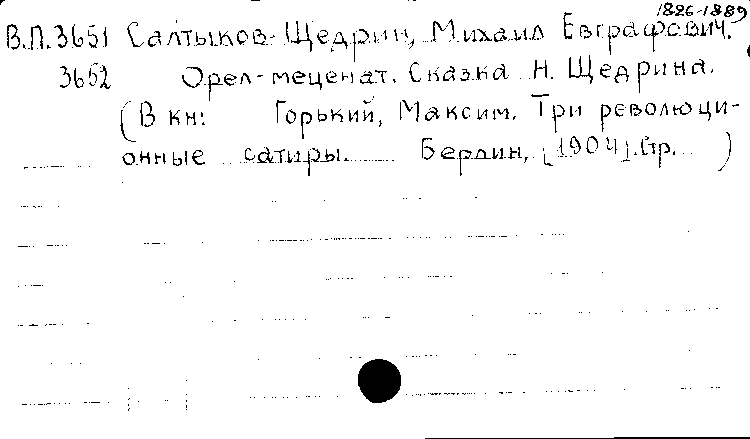 1826-1889
В.П.3651 Салтыков-Щедрин, Михаил Евграфович.
3652 Орел-меценат. Сказка Н. Щедрина.
(В кн: Горький, Максим. Три революци-
онные сатиры. Берлин, [1904]. Стр. )